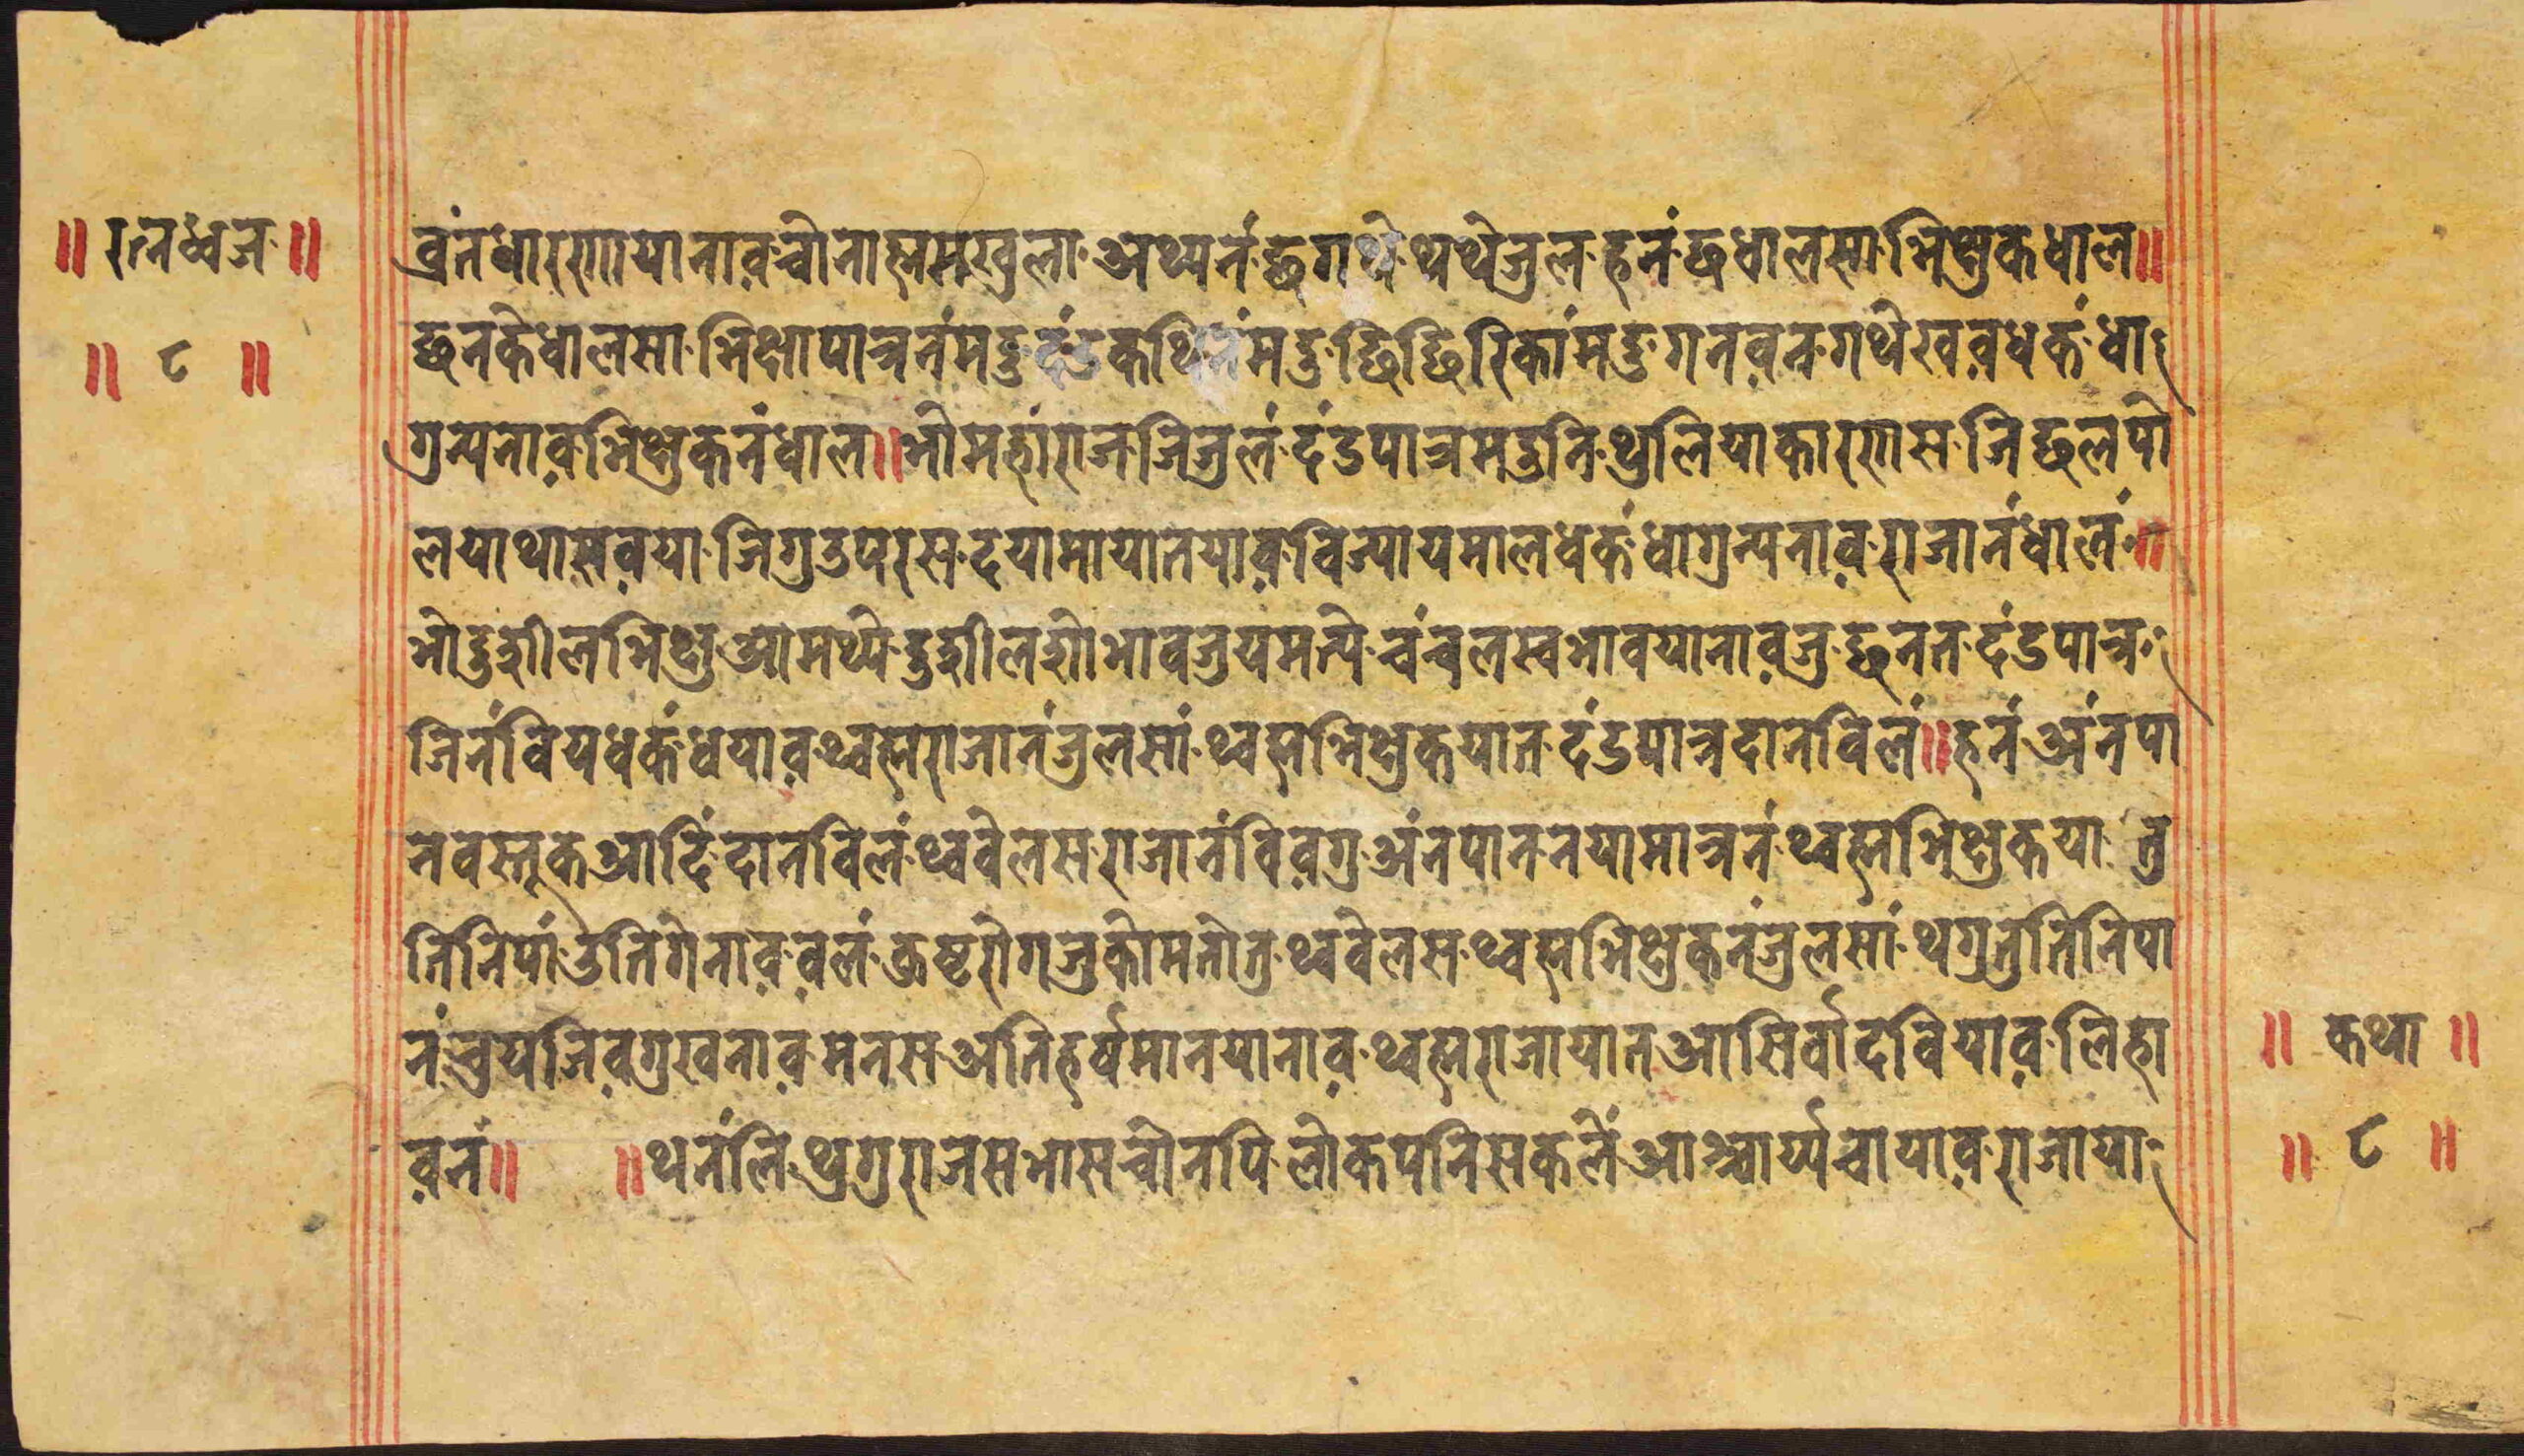 ॥ रत्नध्वज ॥
॥ ८ ॥
व्रंतधारणायानाव़चोनाह्मसखुला अथ्यनं छुगथे थथेजुल हनं छुधालसा भिक्षुकधाल॥
छुनकेधालसा भिक्षापात्रनंमदु दंडकथिनंमदु छिछिरिकांमदु गनव़नगथेखव़धकं धा
गुन्यनाव़भिक्षुकनंधाल॥भोमहांराजजिजुलं दंडपात्रमदुनि थुलियाकारणस जिछलपो
लयाथासव़या जिगुउपरस दयामायातयाव़विज्यायमालधकं धागुन्यनाव़ राजानंधालं॥
भोदुशीलभिक्षु आमथ्ये दुशीलशोभावजुयमत्ये चंचलस्वभावयानाव़जु छनत दंडपात्र
जिनंवियधकं धयाव़ थ्वह्मराजानंजुलसां थ्वह्मभिक्षुकयात दंडपात्रदानविलं॥हनं अंनपा
नवस्तूकआदिं दानविलं थ्ववेलस राजानंविव़गु अंनपाननयामात्रनं थ्वह्मभिक्षुकया तु
तिनिपां उतिगेनाव़ व़लं कुष्टरोगजुकोमतोतु थ्ववेलस थ्वह्मभिक्षुकनंजुलसां थगुतुतिनिपा
नं चुयजिव़गुखनाव़ मनस अतिहर्षमानयानाव़ थ्वह्मराजायात आसिर्वादवियाव़ लिहा
व़नं॥ ॥थनंलि थुगुराजसभासचोनपि लोकपनिसकलें आश्चार्य्यचायाव़ राजाया
॥ कथा ॥
॥ ८ ॥